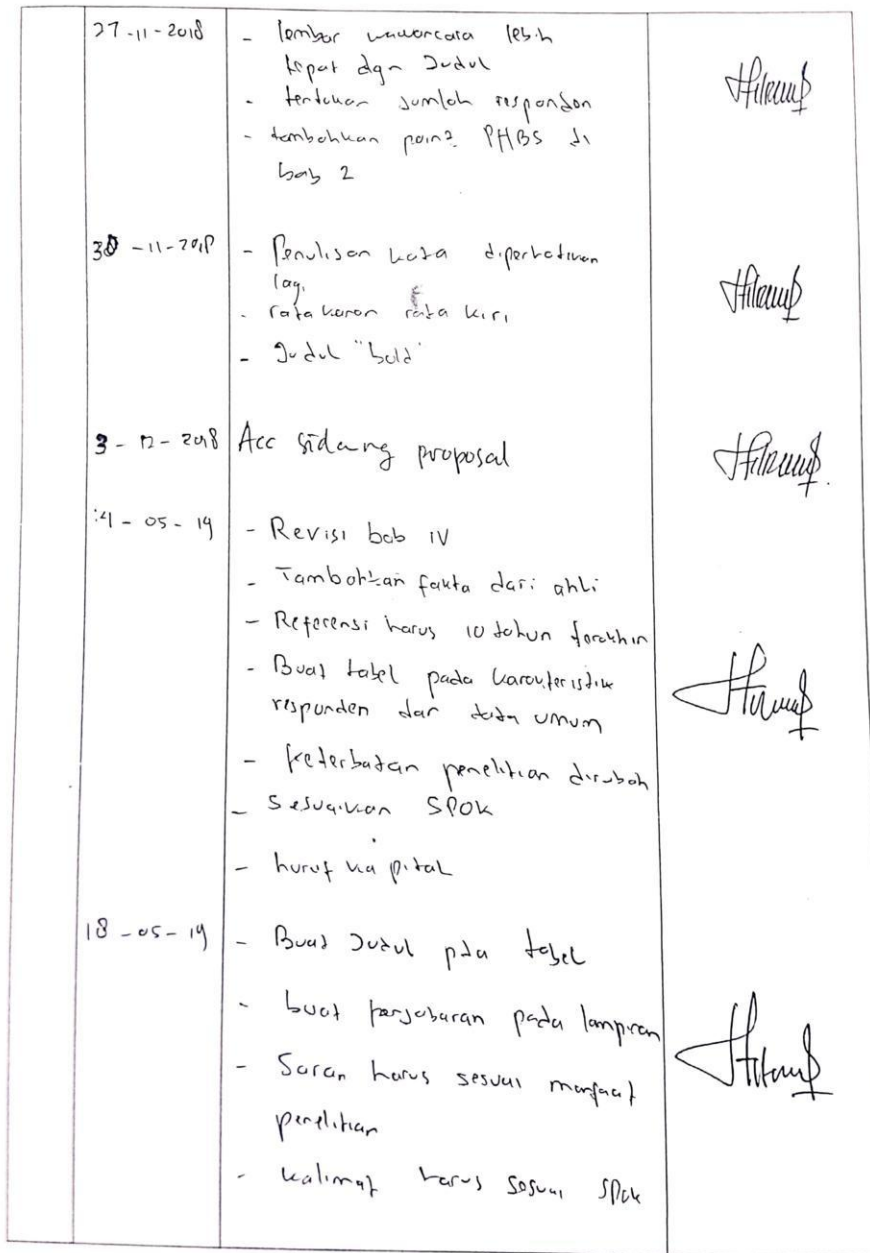 27-11-2018
- lembar wawancara lebih
tepat dgn Judul
- tentukan jumlah responden
- tambahkan poin2 PHBS di
bab 2
30-11-2018
- Penulisan kata diperhatikan
lagi
- rata kanan rata kiri
- Judul "bold"
3-12-2018 Acc sidang proposal
-05-19
- Revisi bab IV
- Tambahkan fakta dari ahli
- Referensi harus 10 tahun terakhir
- Buat tabel pada karakteristik
responden dan data umum
- keterbatan penelitian dirubah
- Sesuaikan SPOK
- huruf kapital
18-05-19
- Buat Judul pda tabel
- buat penjabaran pada lampiran
- Saran harus sesuai manfaat
penelitian
- kalimat harus sesuai SPOK